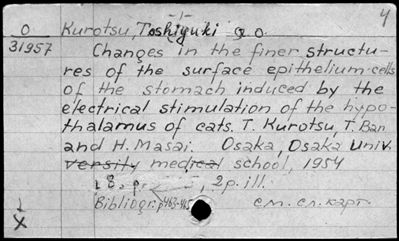 -1-
4
O Kurotsu, Toshiyuki a. o.
31957 Changes in the finer structu-
res of the surface epithelium cells
of the stomach induced by the
electrical stimulation of the hypo-
thalamus of cats. T. Kurotsu, T. Ban
and H. Masai. Osaka, Osaka Univ.
versity medical school, 1954
2 p. ill.
Bibliogr: p 463-465 см. сл. карт.
1
X